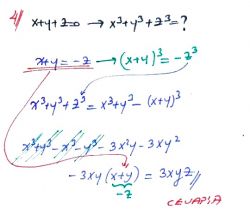 4) x+y+z=0 → x³+y³+z³=?
x+y=-z → (x+y)³=-z³
x³+y³+z³=x³+y³-(x+y)³
x³+y³-x³-y³-3x²y-3xy²
-3xy(x+y)=3xyz//
-z
CEVAPSA